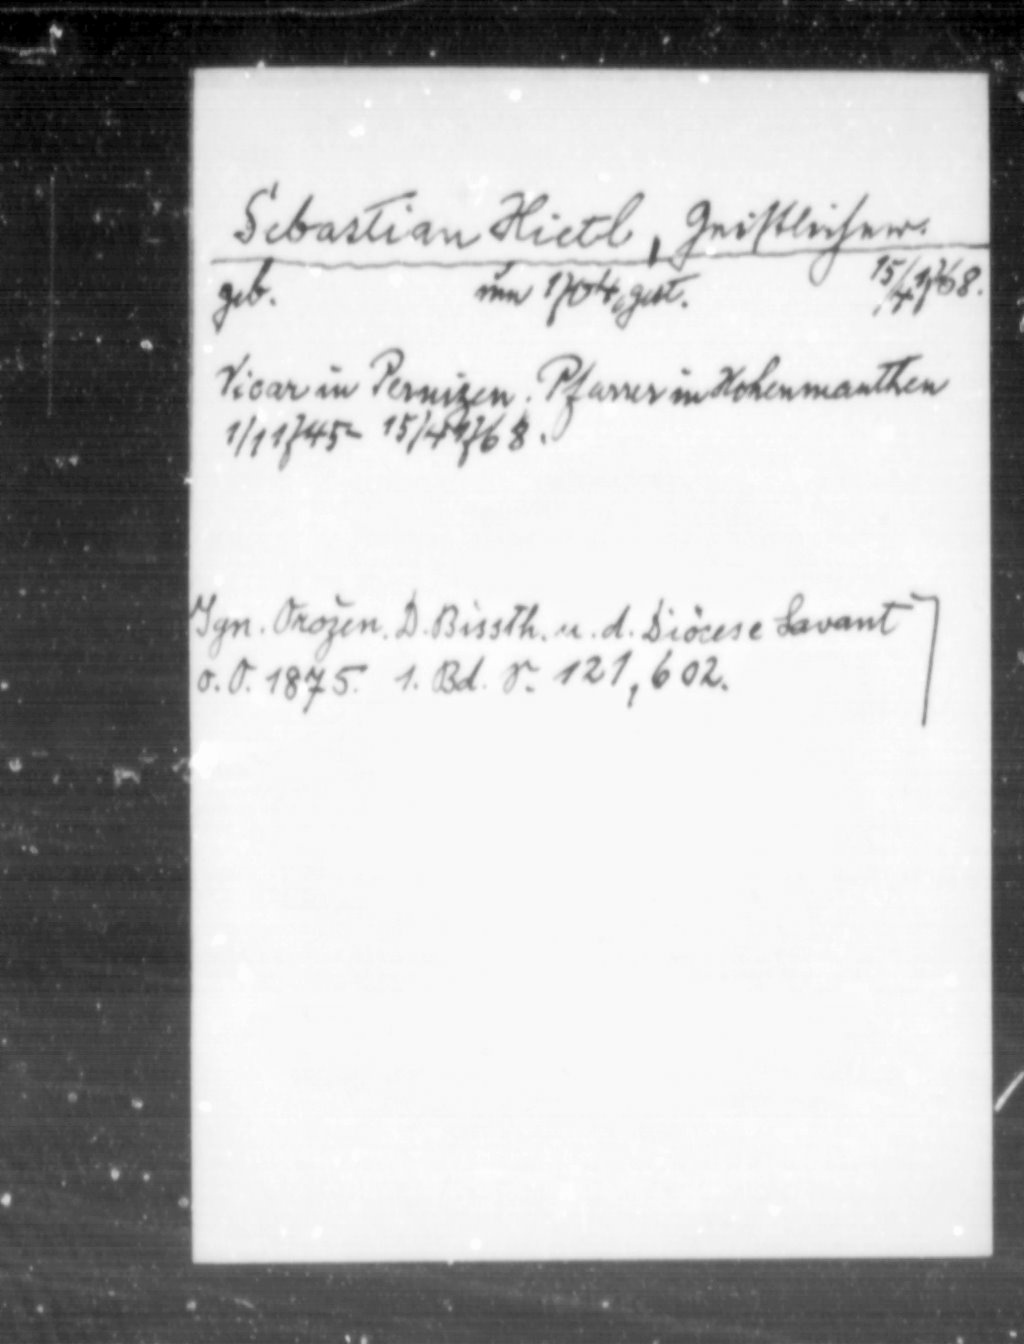 Sebastian Hietl, Geistlicher.
geb. um 1704, gest. 15/4 1768.
Vicar in Pernizen. Pfarrer in Hohenmauthen
1/1 1745 - 15/4 1768.
Ign. Orožen. D. Bissth. u. d. Diöcese Lavant
o. O. 1875. 1. Bd. S. 121, 602.